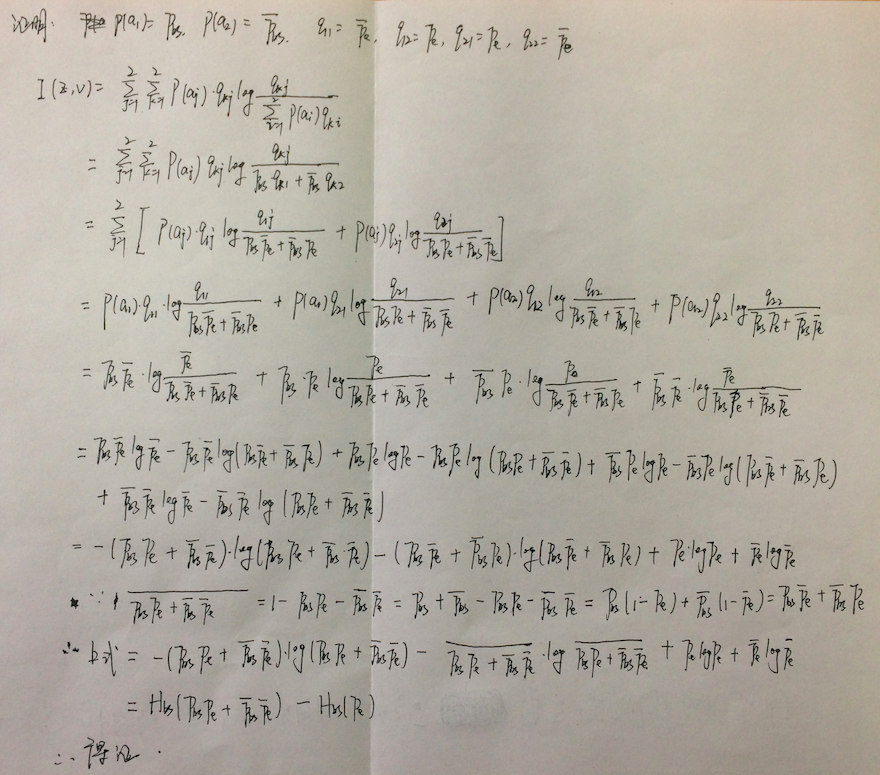 证明: P(a₁)=P_bs, P(a₂)=P̄_bs, q₁₁=P̄e, q₁₂=Pe, q₂₁=Pe, q₂₂=P̄e
I(z,v)= ∑_{j=1}^{2} ∑_{k=1}^{2} P(aj)·qkj log qkj / (∑_{i=1}^{2} P(ai) qki)
= ∑_{j=1}^{2} ∑_{k=1}^{2} P(aj) qkj log qkj / (P_bs qk1 + P̄_bs qk2)
= ∑_{j=1}^{2} [ P(aj)·q1j log q1j / (P_bs P̄e + P̄_bs Pe) + P(aj) q2j log q2j / (P_bs Pe + P̄_bs P̄e) ]
= P(a₁)·q₁₁·log q₁₁ / (P_bs P̄e + P̄_bs Pe) + P(a₁) q₂₁ log q₂₁ / (P_bs Pe + P̄_bs P̄e) + P(a₂) q₁₂ log q₁₂ / (P_bs P̄e + P̄_bs Pe) + P(a₂) q₂₂ log q₂₂ / (P_bs Pe + P̄_bs P̄e)
= P_bs P̄e·log P̄e / (P_bs P̄e + P̄_bs Pe) + P_bs·Pe log Pe / (P_bs Pe + P̄_bs P̄e) + P̄_bs Pe·log Pe / (P_bs P̄e + P̄_bs Pe) + P̄_bs P̄e·log P̄e / (P_bs Pe + P̄_bs P̄e)
= P_bs P̄e log P̄e − P_bs P̄e log(P_bs P̄e + P̄_bs Pe) + P_bs Pe log Pe − P_bs Pe log(P_bs Pe + P̄_bs P̄e) + P̄_bs Pe log Pe − P̄_bs Pe log(P_bs P̄e + P̄_bs Pe)
+ P̄_bs P̄e log P̄e − P̄_bs P̄e log(P_bs Pe + P̄_bs P̄e)
= −(P_bs Pe + P̄_bs P̄e)·log(P_bs Pe + P̄_bs·P̄e) − (P_bs P̄e + P̄_bs Pe)·log(P_bs P̄e + P̄_bs Pe) + Pe·log Pe + P̄e log P̄e
∵ \overline{P_bs Pe + P̄_bs P̄e} = 1 − P_bs Pe − P̄_bs P̄e = P_bs + P̄_bs − P_bs Pe − P̄_bs P̄e = P_bs(1−Pe) + P̄_bs(1−P̄e) = P_bs P̄e + P̄_bs Pe
∴ 上式 = −(P_bs Pe + P̄_bs P̄e)·log(P_bs Pe + P̄_bs P̄e) − \overline{P_bs Pe + P̄_bs P̄e}·log \overline{P_bs Pe + P̄_bs P̄e} + Pe log Pe + P̄e log P̄e
= H_bs(P_bs Pe + P̄_bs P̄e) − H_bs(Pe)
∴ 得证.